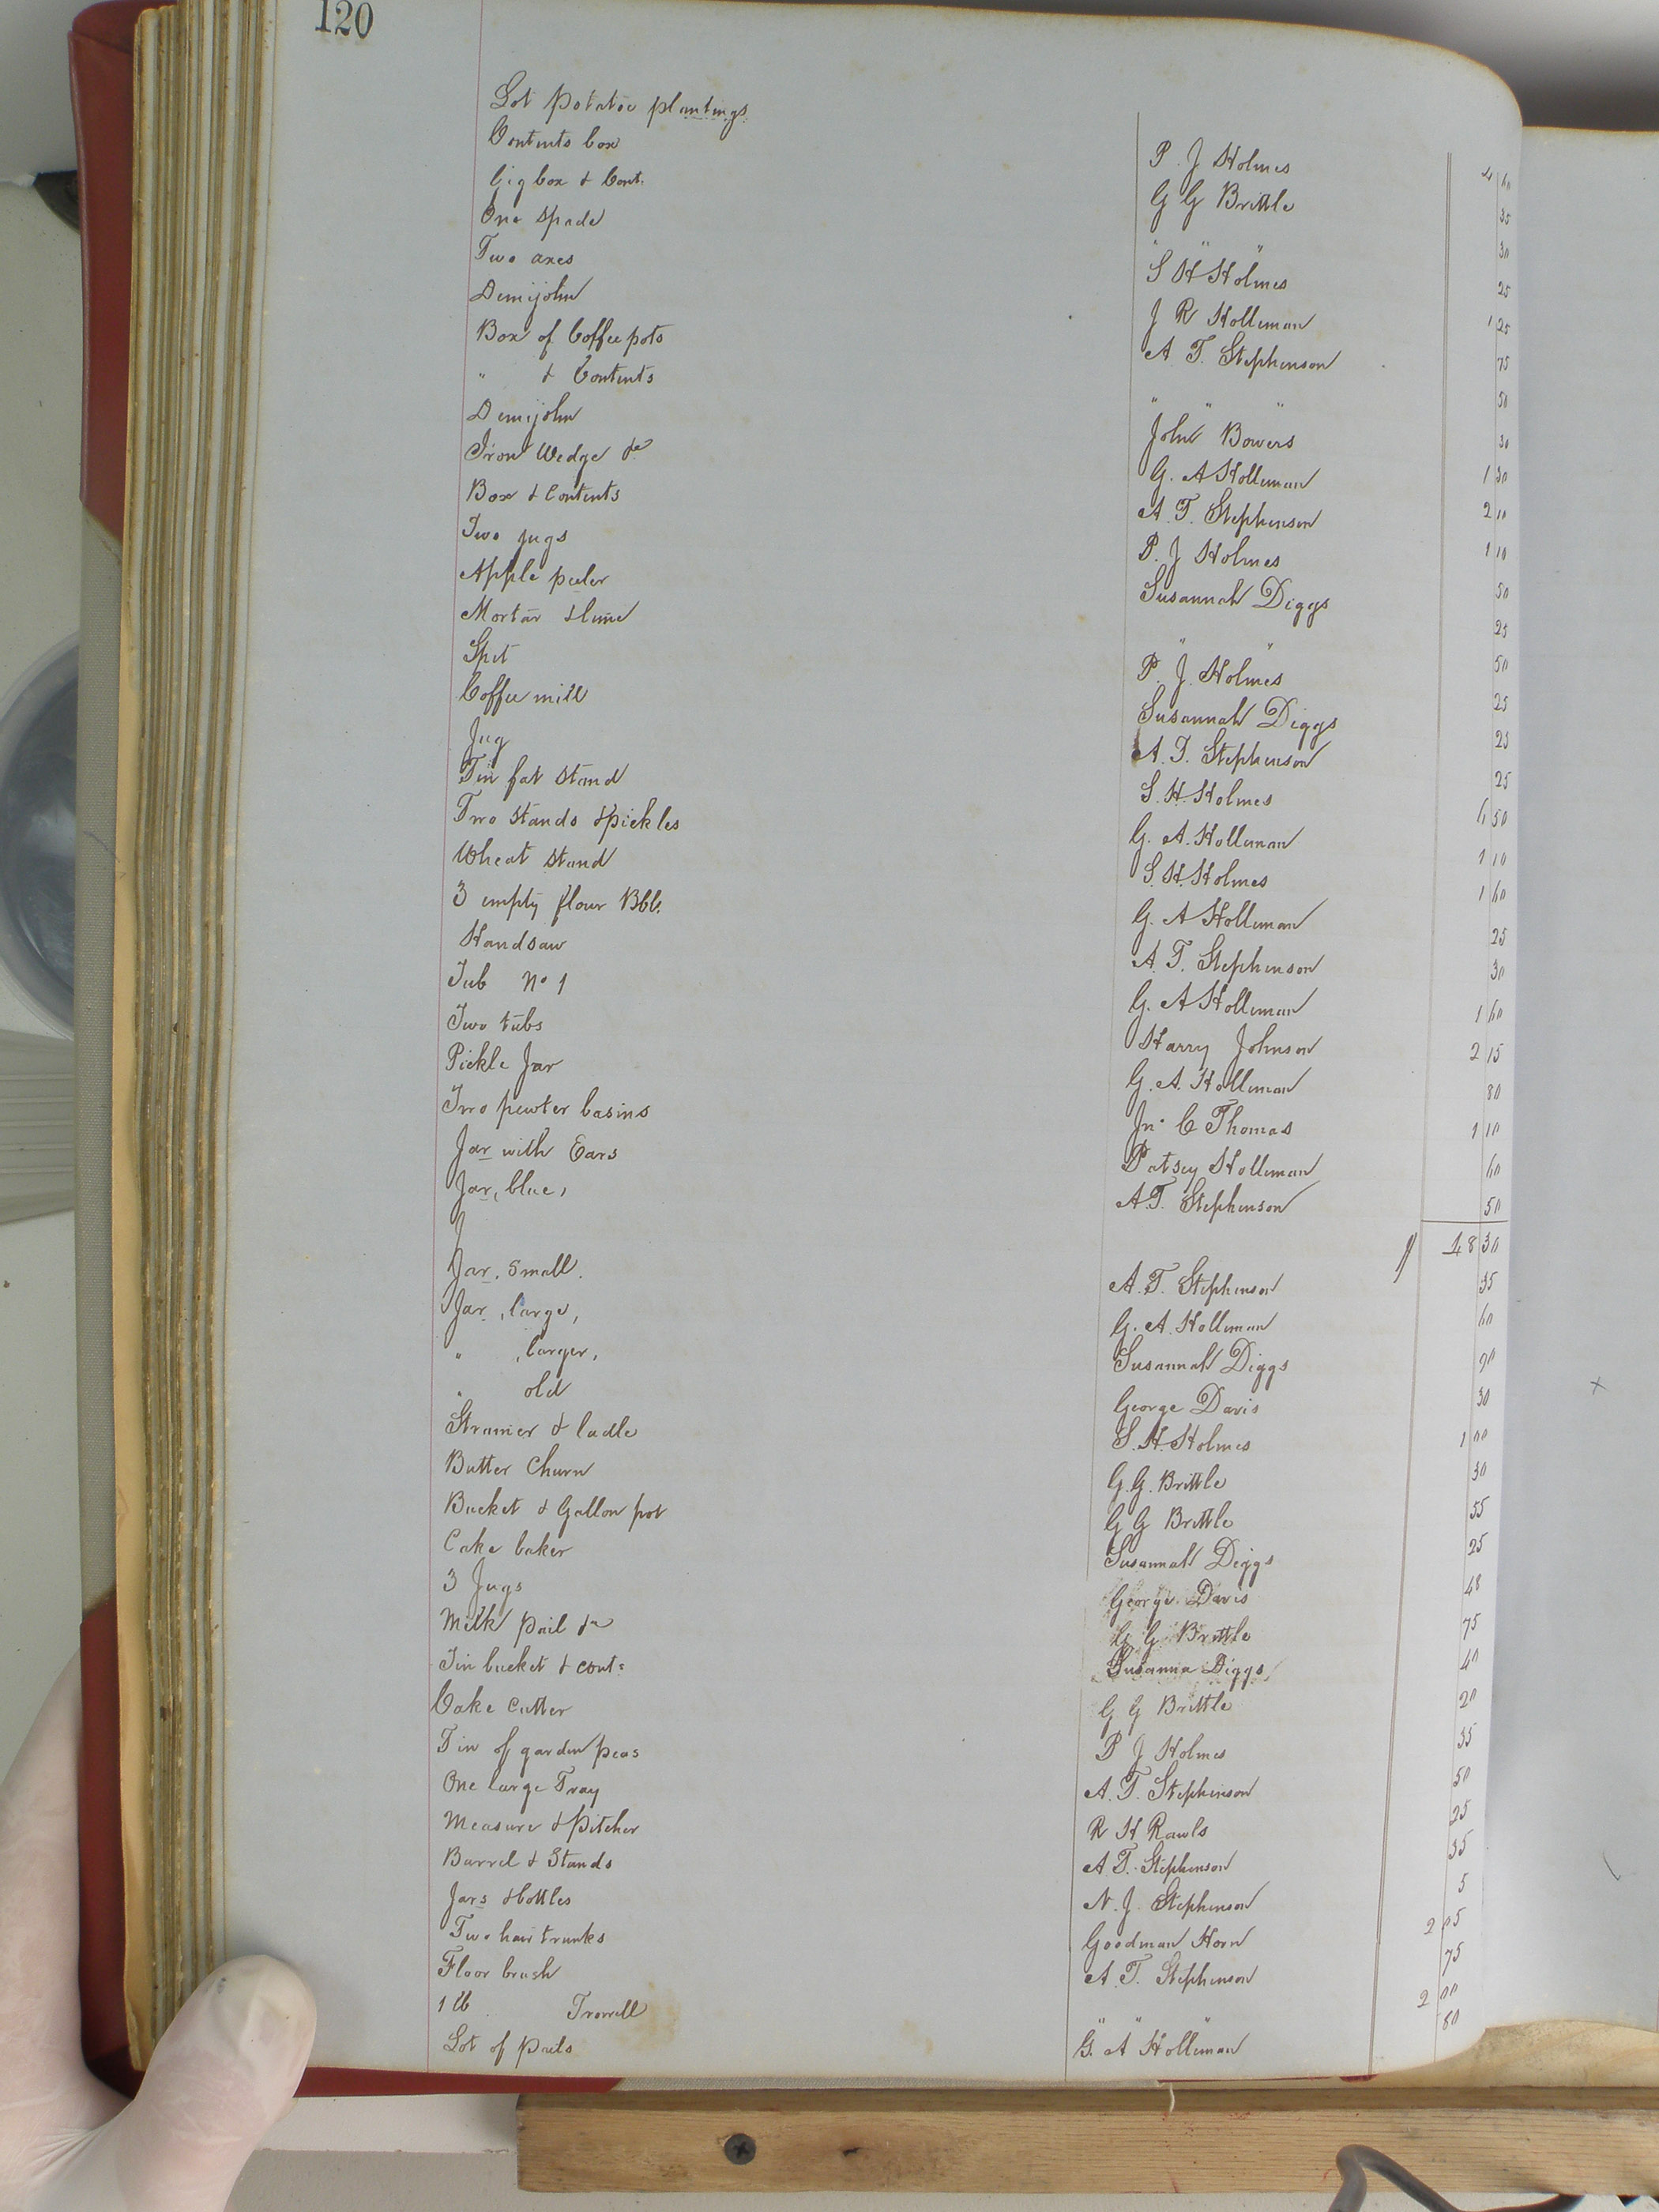 120
Lot Potatoe plantings P. J Holmes
Contents box G G Brittle 35
Gig box & Cont. " " " 30
One Spade S H Holmes 25
Two axes J R Holleman 1 25
Demijohn A. T. Stephenson 75
Box of Coffee pots " " " 50
" & Contents John Bowers 30
Demijohn G. A Holleman 1 30
Iron Wedge &c A. T. Stephenson 2 10
Box & Contents P. J Holmes 1 10
Two jugs Susannah Diggs 50
Apple peeler " " 25
Mortar & lime P. J. Holmes 50
Spit Susannah Diggs 25
Coffee mill A. T. Stephenson 25
Jug S. H. Holmes 25
Tin fat Stand G. A. Holleman 50
Two Stands & pickles S. H. Holmes 1 10
Wheat Stand G. A Holleman 1 60
3 empty flour Bbl. A. T. Stephenson 25
Handsaw G. A Holleman 30
Tub No 1 Harry Johnson 1 60
Two tubs G. A. Holleman 2 15
Pickle Jar Jn. C Thomas 80
Two pewter basins Patsey Holleman 1 10
Jar with Ears A T. Stephenson 60
Jar, blue, 50
48 30
Jar, Small. A. T. Stephenson 35
Jar, large, G. A. Holleman 60
" , larger, Susannah Diggs 90
" old George Davis 30
Strainer & ladle S. H. Holmes 1 00
Butter Churn G. G. Brittle 30
Bucket & Gallon pot G G Brittle 55
Cake baker Susannah Diggs 25
3 Jugs George Davis 48
Milk Pail &c G G Brittle 75
Tin bucket & cont: Susanna Diggs 40
Cake Cutter G G Brittle 20
Tin of garden peas P J Holmes 35
One large Tray A. T. Stephenson 50
Measure & Pitcher R H Rawls 25
Barrel & Stands A T. Stephenson 35
Jars & bottles N. J. Stephenson 5
Two hair trunks Goodman Horn 2 05
Floor brush A. T. Stephenson 75
1 lb Trowell " " " 2 00
Lot of G. A Holleman 80